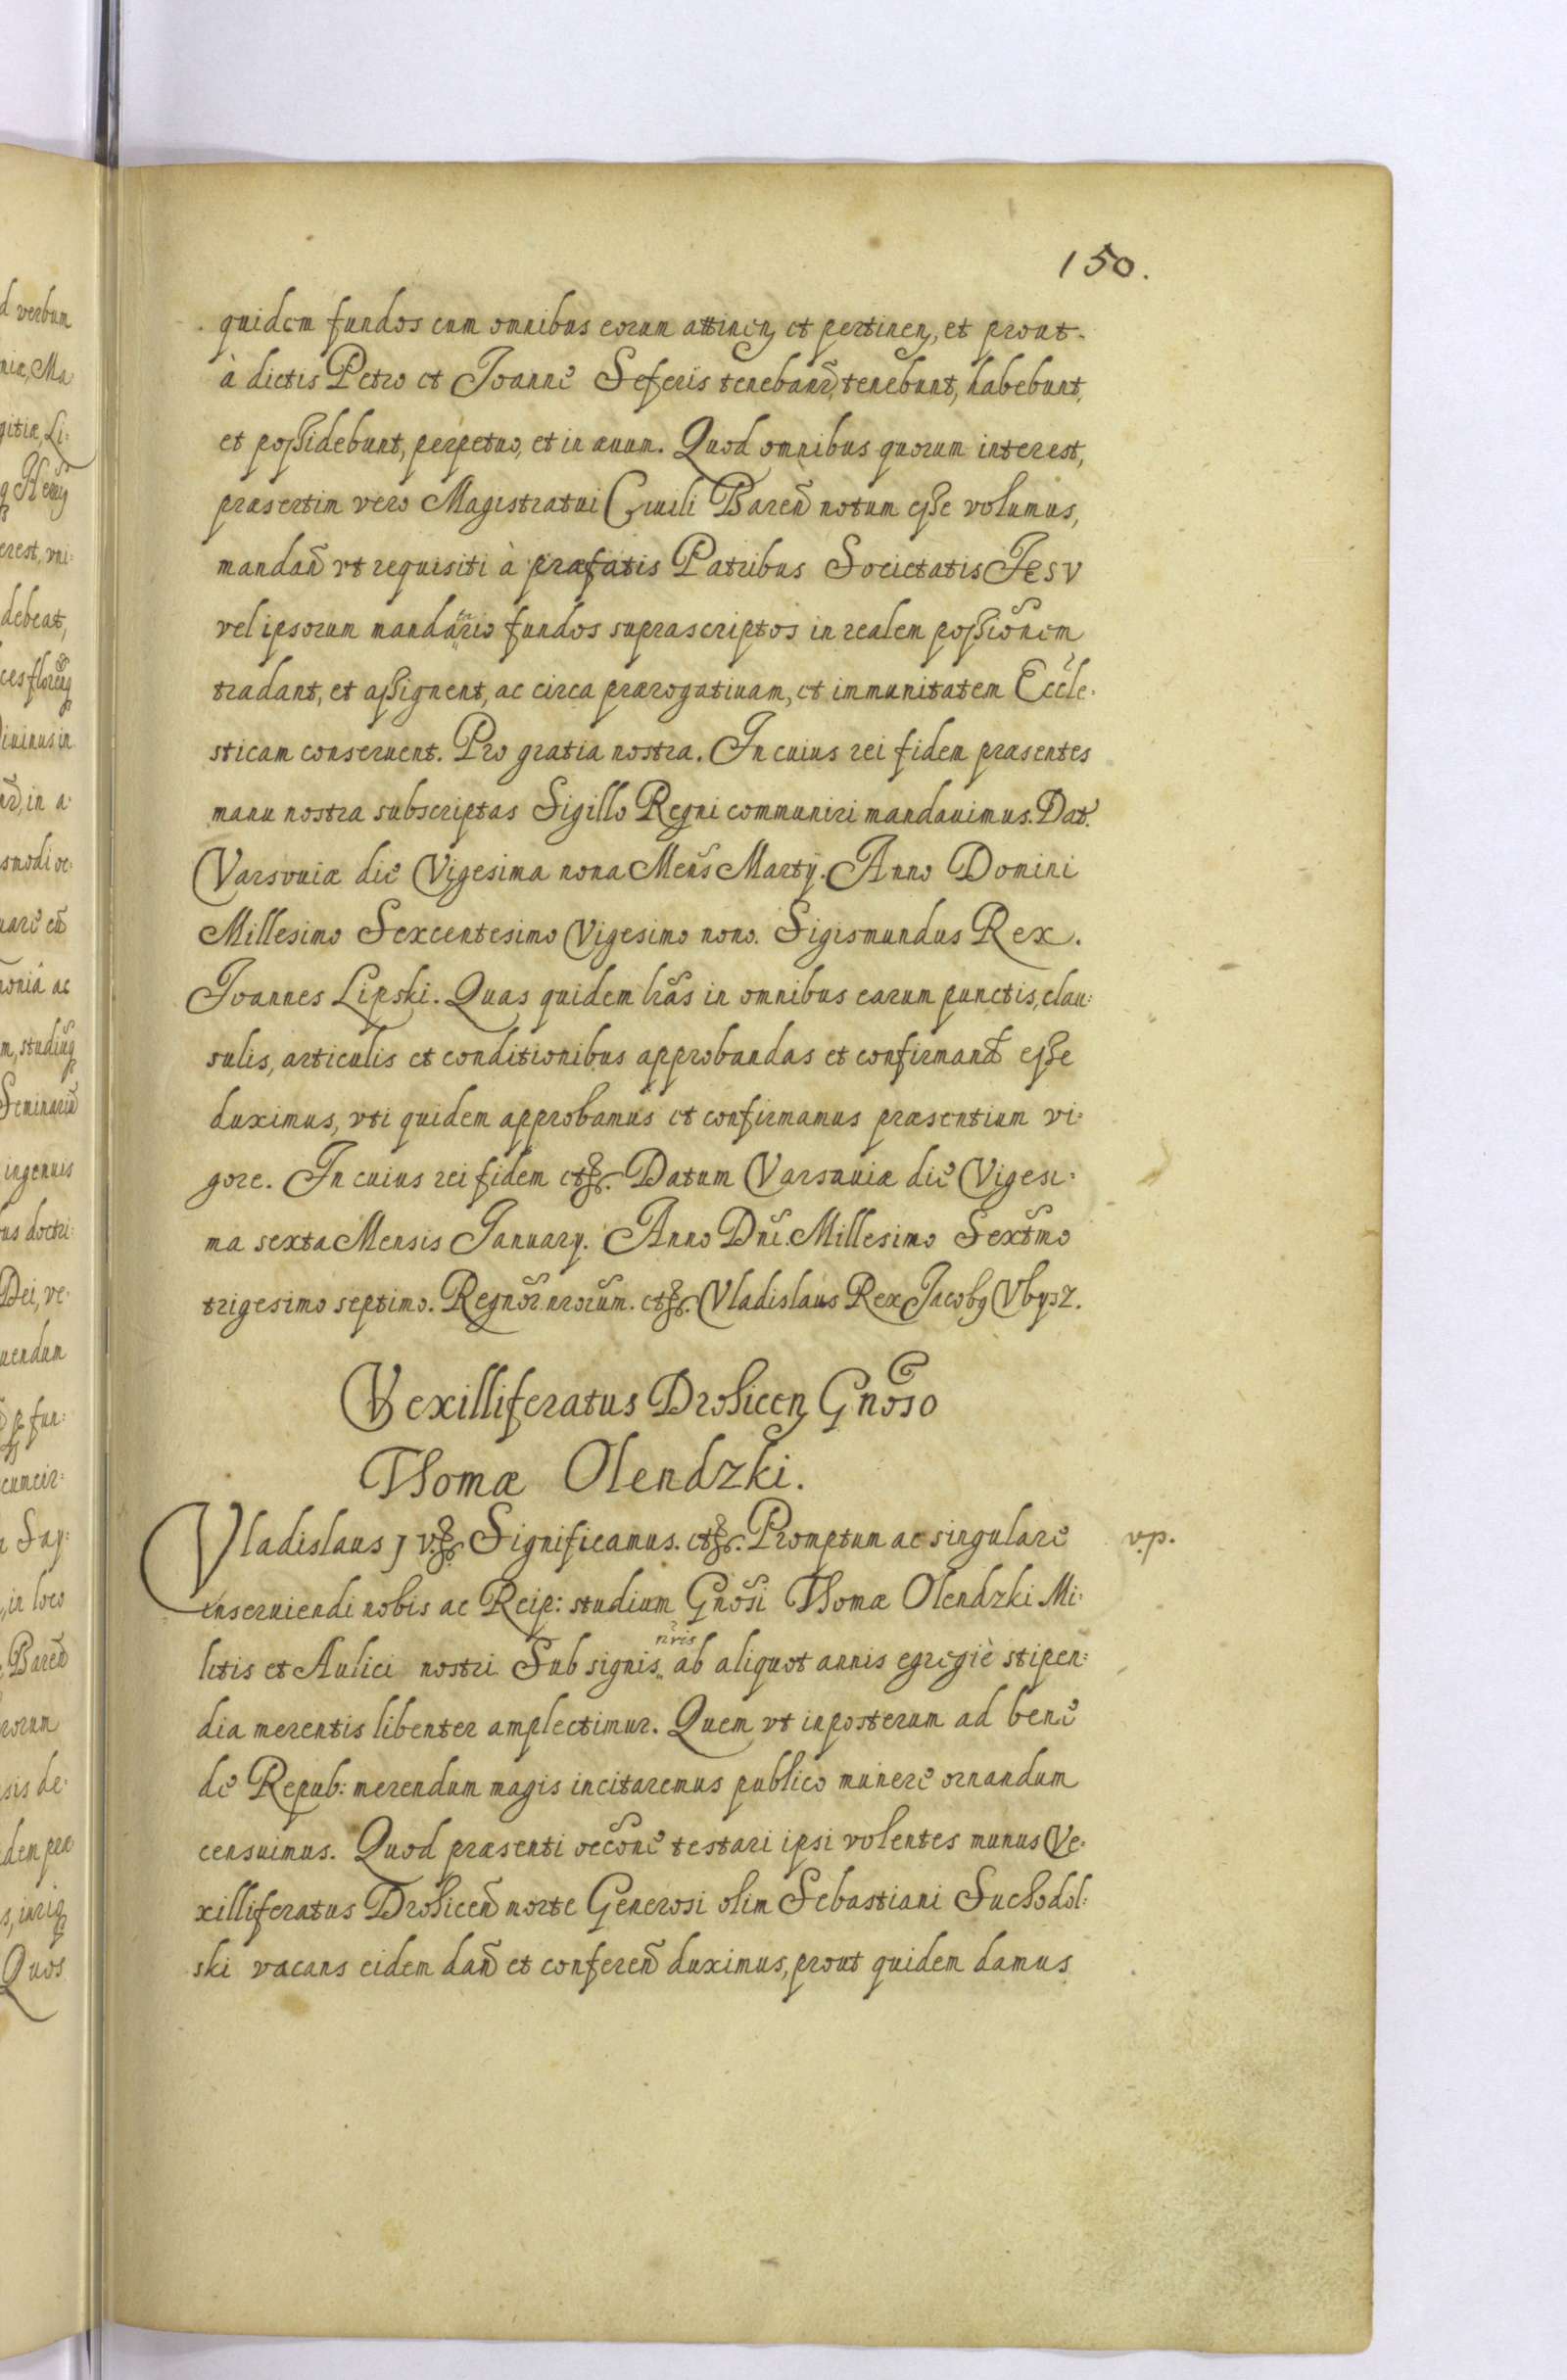 150.
quidem fundos cum omnibus eorum attinen et pertinen, et prout
à dictis Petro et Joanne Seferis tenebanr̃, tenebunt, habebunt,
et possidebunt, perpetuo, et in æuum. Quod omnibus quorum interest,
præsertim vero Magistratui Ciuili Bareñ notum esse volumus,
mandañ vt requisiti à præfatis Patribus Societatis Jesv
vel ipsorum mandãrio fundos suprascriptos in realem possiõnem
tradant, et assignent, ac circa prærogatiuam, et immunitatem Eccle:
sticam conseruent. Pro gratia nostra. In cuius rei fidem præsentes
manu nostra subscriptas Sigillo Regni communiri mandauimus. Dat.
Varsouiæ die Vigesima nona Meñs Martÿ. Anno Domini
Millesimo Sexcentesimo Vigesimo nono. Sigismundus Rex.
Joannes Lipski. Quas quidem lr̃as in omnibus earum punctis, clau:
sulis, articulis et conditionibus approbandas et confirmand esse
duximus, vti quidem approbamus et confirmamus præsentium vi:
gore. In cuius rei fidem etc. Datum Varsauiæ die Vigesi:
ma sexta Mensis January. Anno Dñi. Millesimo Sextm̃o
trigesimo septimo. Regnõr. nrorũm. etc. Vladislaus Rex Jacobg Vbysz.
Vexilliferatus Drohicen Gnõso
Thomæ Olendzki.
Vladislaus j v. etc. Significamus. etc. Promptum ac singulare v.p.
inseruiendi nobis ac Reip: studium Gnõsi Thomæ Olendzki Mi:
litis et Aulici nostri Sub signis nr̃is ab aliquot annis egregiè stipen:
dia merentis libenter amplectimur. Quem vt inposterum ad bene
de Repub: merendum magis incitaremus publico munere ornandum
censuimus. Quod præsenti occõne testari ipsi volentes munus Ve:
xilliferatus Drohiceñ morte Generosi olim Sebastiani Suchodol:
ski vacans eidem dañ et confereñ duximus, prout quidem damus